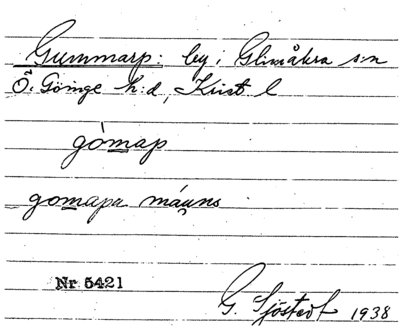 Gummarp: by i Glimåkra s:n
Ö. Göinge h:d, Krist. l
gòmap
gomapa máu̯ns
Nr 5421
G. Sjöstedt 1938